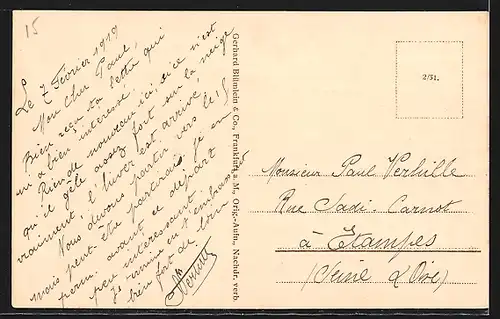 15
Le 7 Février 1919
Mon Cher Paul,
Bien reçu ta lettre qui
m'a bien intéressé.
Rien de nouveau ici, si ce n'est
qu'il gèle assez fort sur la neige
vraiment, l'hiver est arrivé.
Nous devons partir vers le 15
mais peut-être partirais je en
perm. avant ce départ
peu intéressant.
Je termine en t'embrassant
bien fort de loin
Verhille
Gerhard Blümlein & Co., Frankfurt a. M., Orig.-Aufn., Nachdr. verb.
2/31.
Monsieur Paul Verhille
Rue Sadi-Carnot
à Etampes
(Seine & Oise)